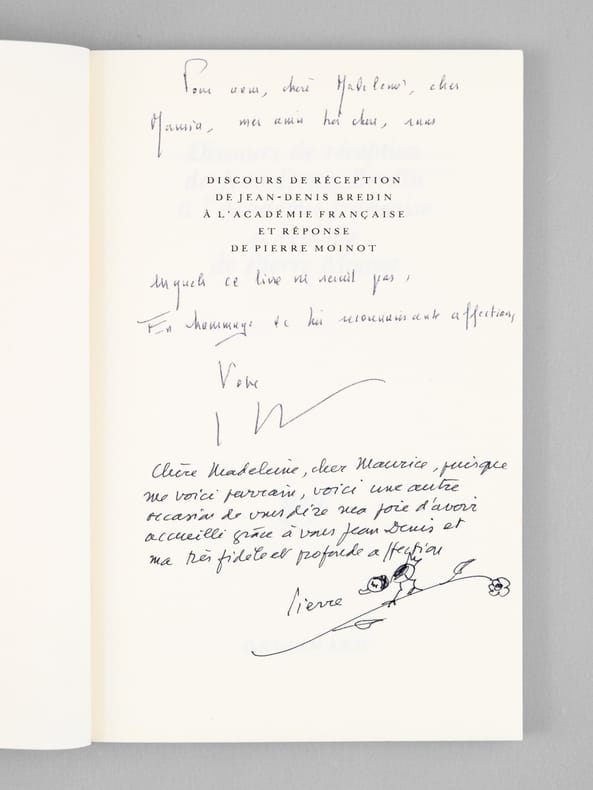 Pour vous, chère Madeleine, cher
Maurice, mes amis très chers, sans
DISCOURS DE RÉCEPTION
DE JEAN-DENIS BREDIN
À L'ACADÉMIE FRANÇAISE
ET RÉPONSE
DE PIERRE MOINOT
lesquels ce livre ne serait pas,
En hommage de très reconnaissante affection,
Votre
Chère Madeleine, cher Maurice, puisque
me voici parrain, voici une autre
occasion de vous dire ma joie d'avoir
accueilli grâce à vous Jean Denis et
ma très fidèle et profonde affection
Pierre